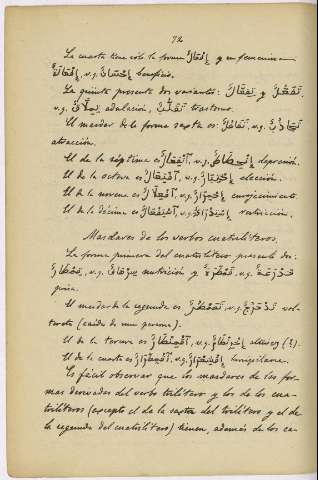 72
La cuarta tiene sólo la forma إِفْعَالٌ y su femenina
إِفْعَالَةٌ, v.g. إِحْسَانٌ beneficio.
La quinta presenta dos variantes: تَفَعُّلٌ y تِفِعَّالٌ
v.g. adulación, تَقَلُّبٌ trastorno.
El masdar de la forma sexta es: تَفَاعُلٌ, v.g. تَجَاذُبٌ
atracción.
El de la séptima es اِنْفِعَالٌ, v.g. اِنْحِطَاطٌ depresión.
El de la octava es اِفْتِعَالٌ, v.g. اِخْتِيَارٌ elección.
El de la novena es اِفْعِلَالٌ, v.g. اِحْمِرَارٌ enrojecimiento.
El de la décima es اِسْتِفْعَالٌ, v.g. restricción.
Masdares de los verbos cuatrilíteros.
La forma primera del cuatrilítero presenta dos:
v.g. nutrición y v.g.
El masdar de la segunda es v.g. تَدَحْرُجٌ vol-
tereta (caída de una persona).
El de la tercera es v.g. (?).
El de la cuarta es v.g. اِقْشِعْرَارٌ
Es fácil observar que los masdares de las for-
mas derivadas del verbo trilítero y los de los cua-
trilíteros (excepto el de la sexta del trilítero y el de
la segunda del cuatrilítero) tienen, además de los ca-